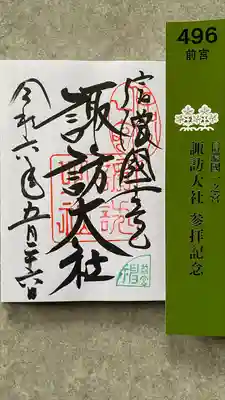 信濃國一之宮
諏訪大社
令和六年五月二十六日
496
前宮
信濃國一之宮
諏訪大社 参拝記念